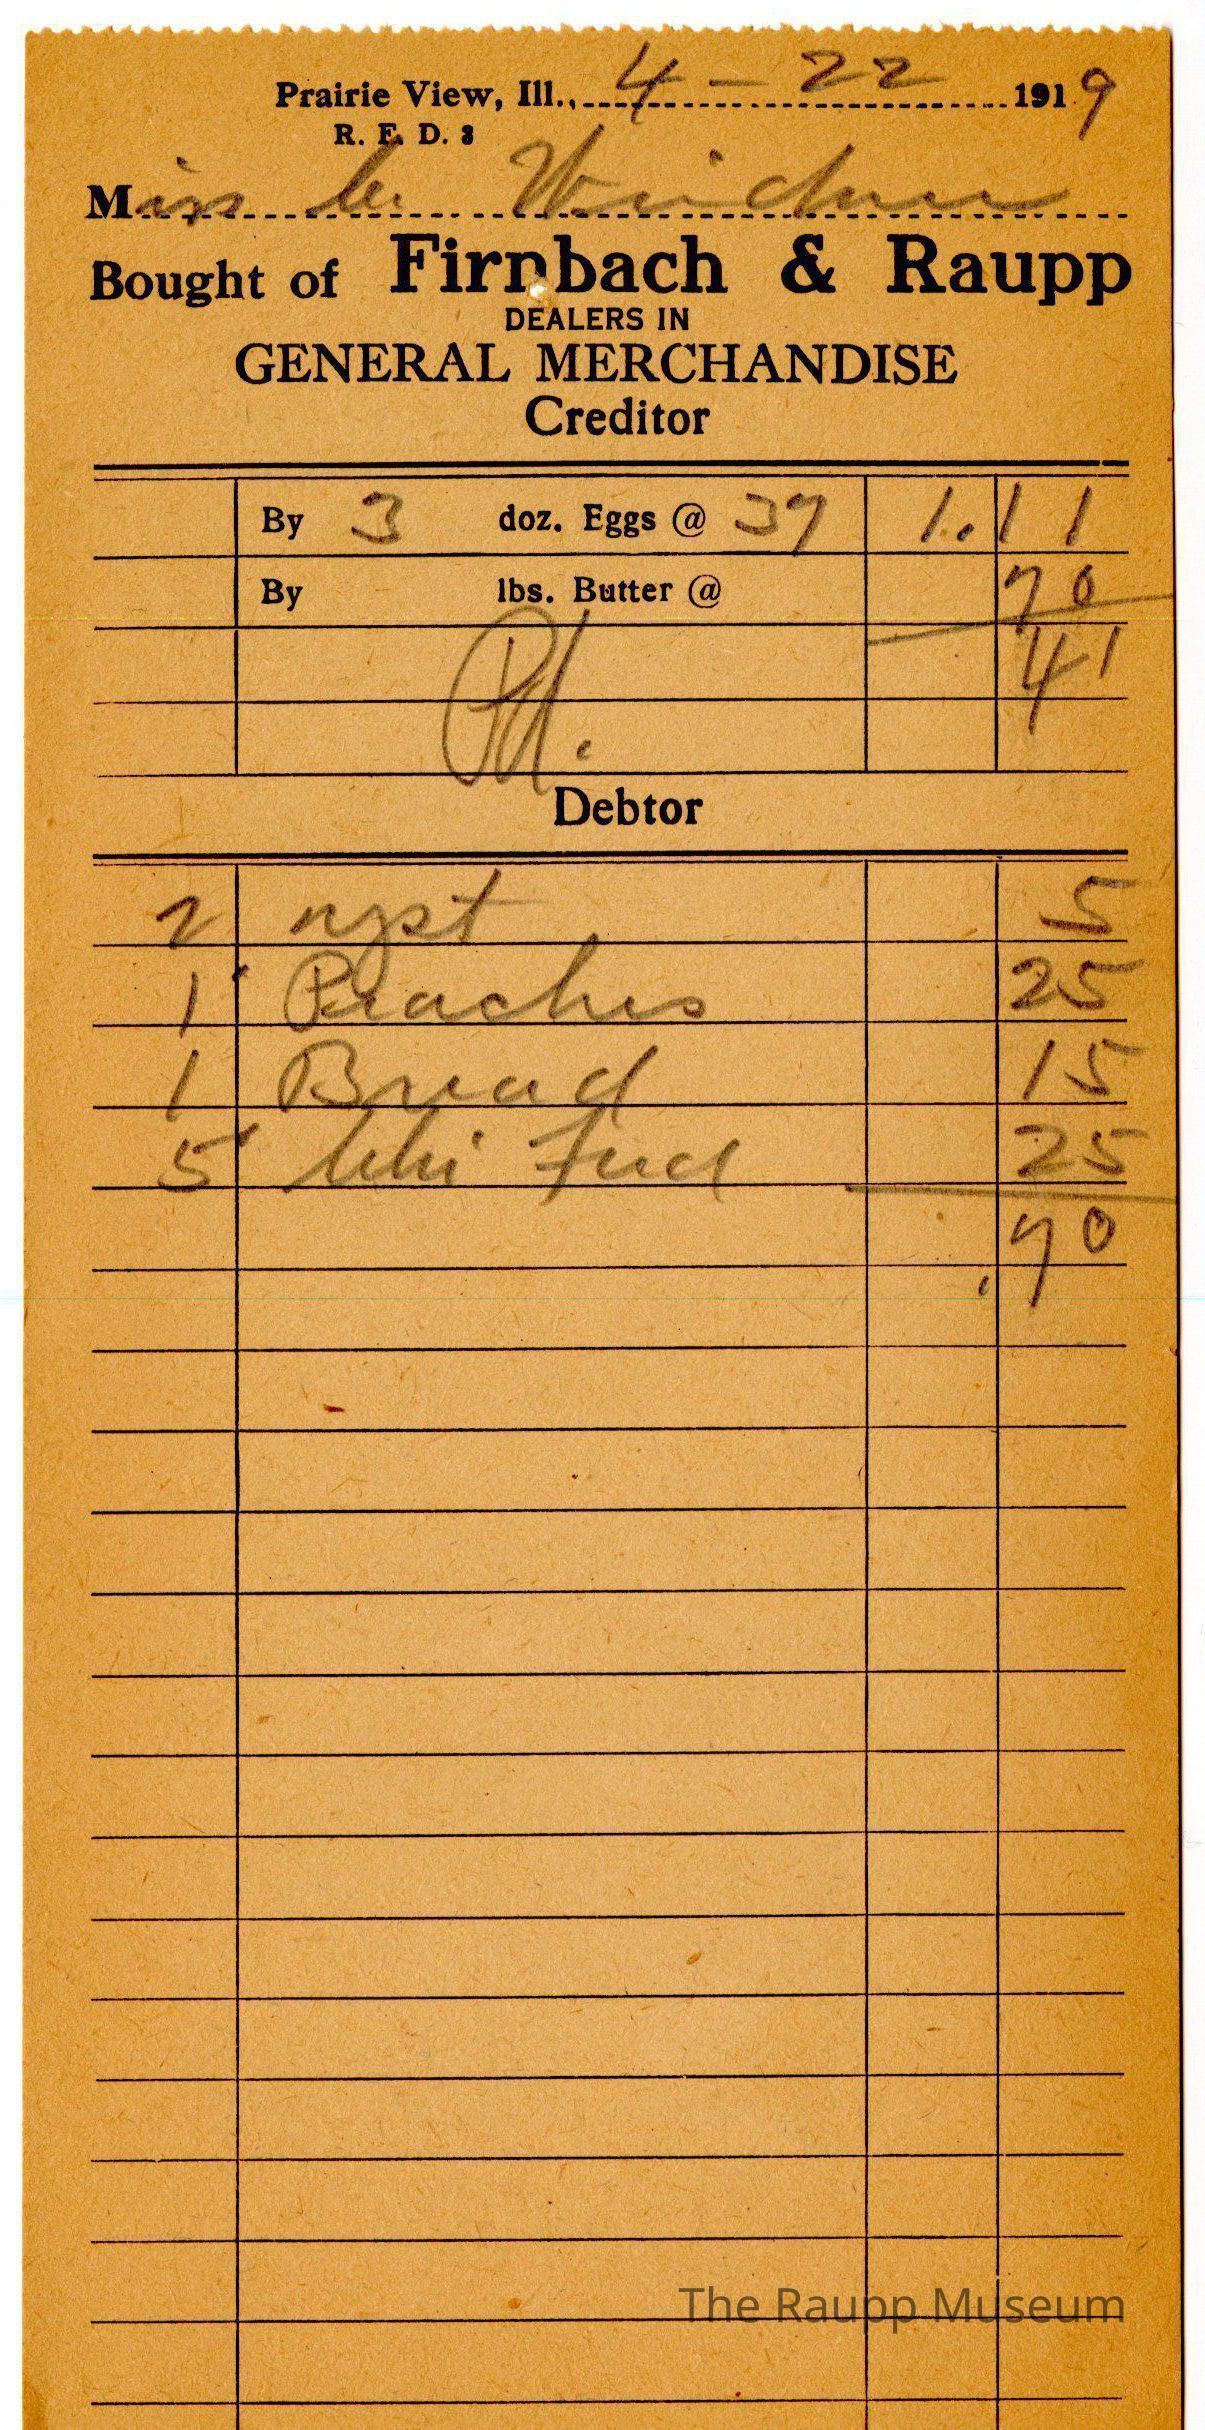 Prairie View, Ill., 4 - 22 1919
R. F. D. 3
Miss
Bought of Firnbach & Raupp
DEALERS IN
GENERAL MERCHANDISE
Creditor
By 3 doz. Eggs @ 37 1.11
By lbs. Butter @ 70
41
Pd.
Debtor
2 yst 5
1 Peaches 25
1 Bread 15
5 Chi Feed 25
.70
The Raupp Museum